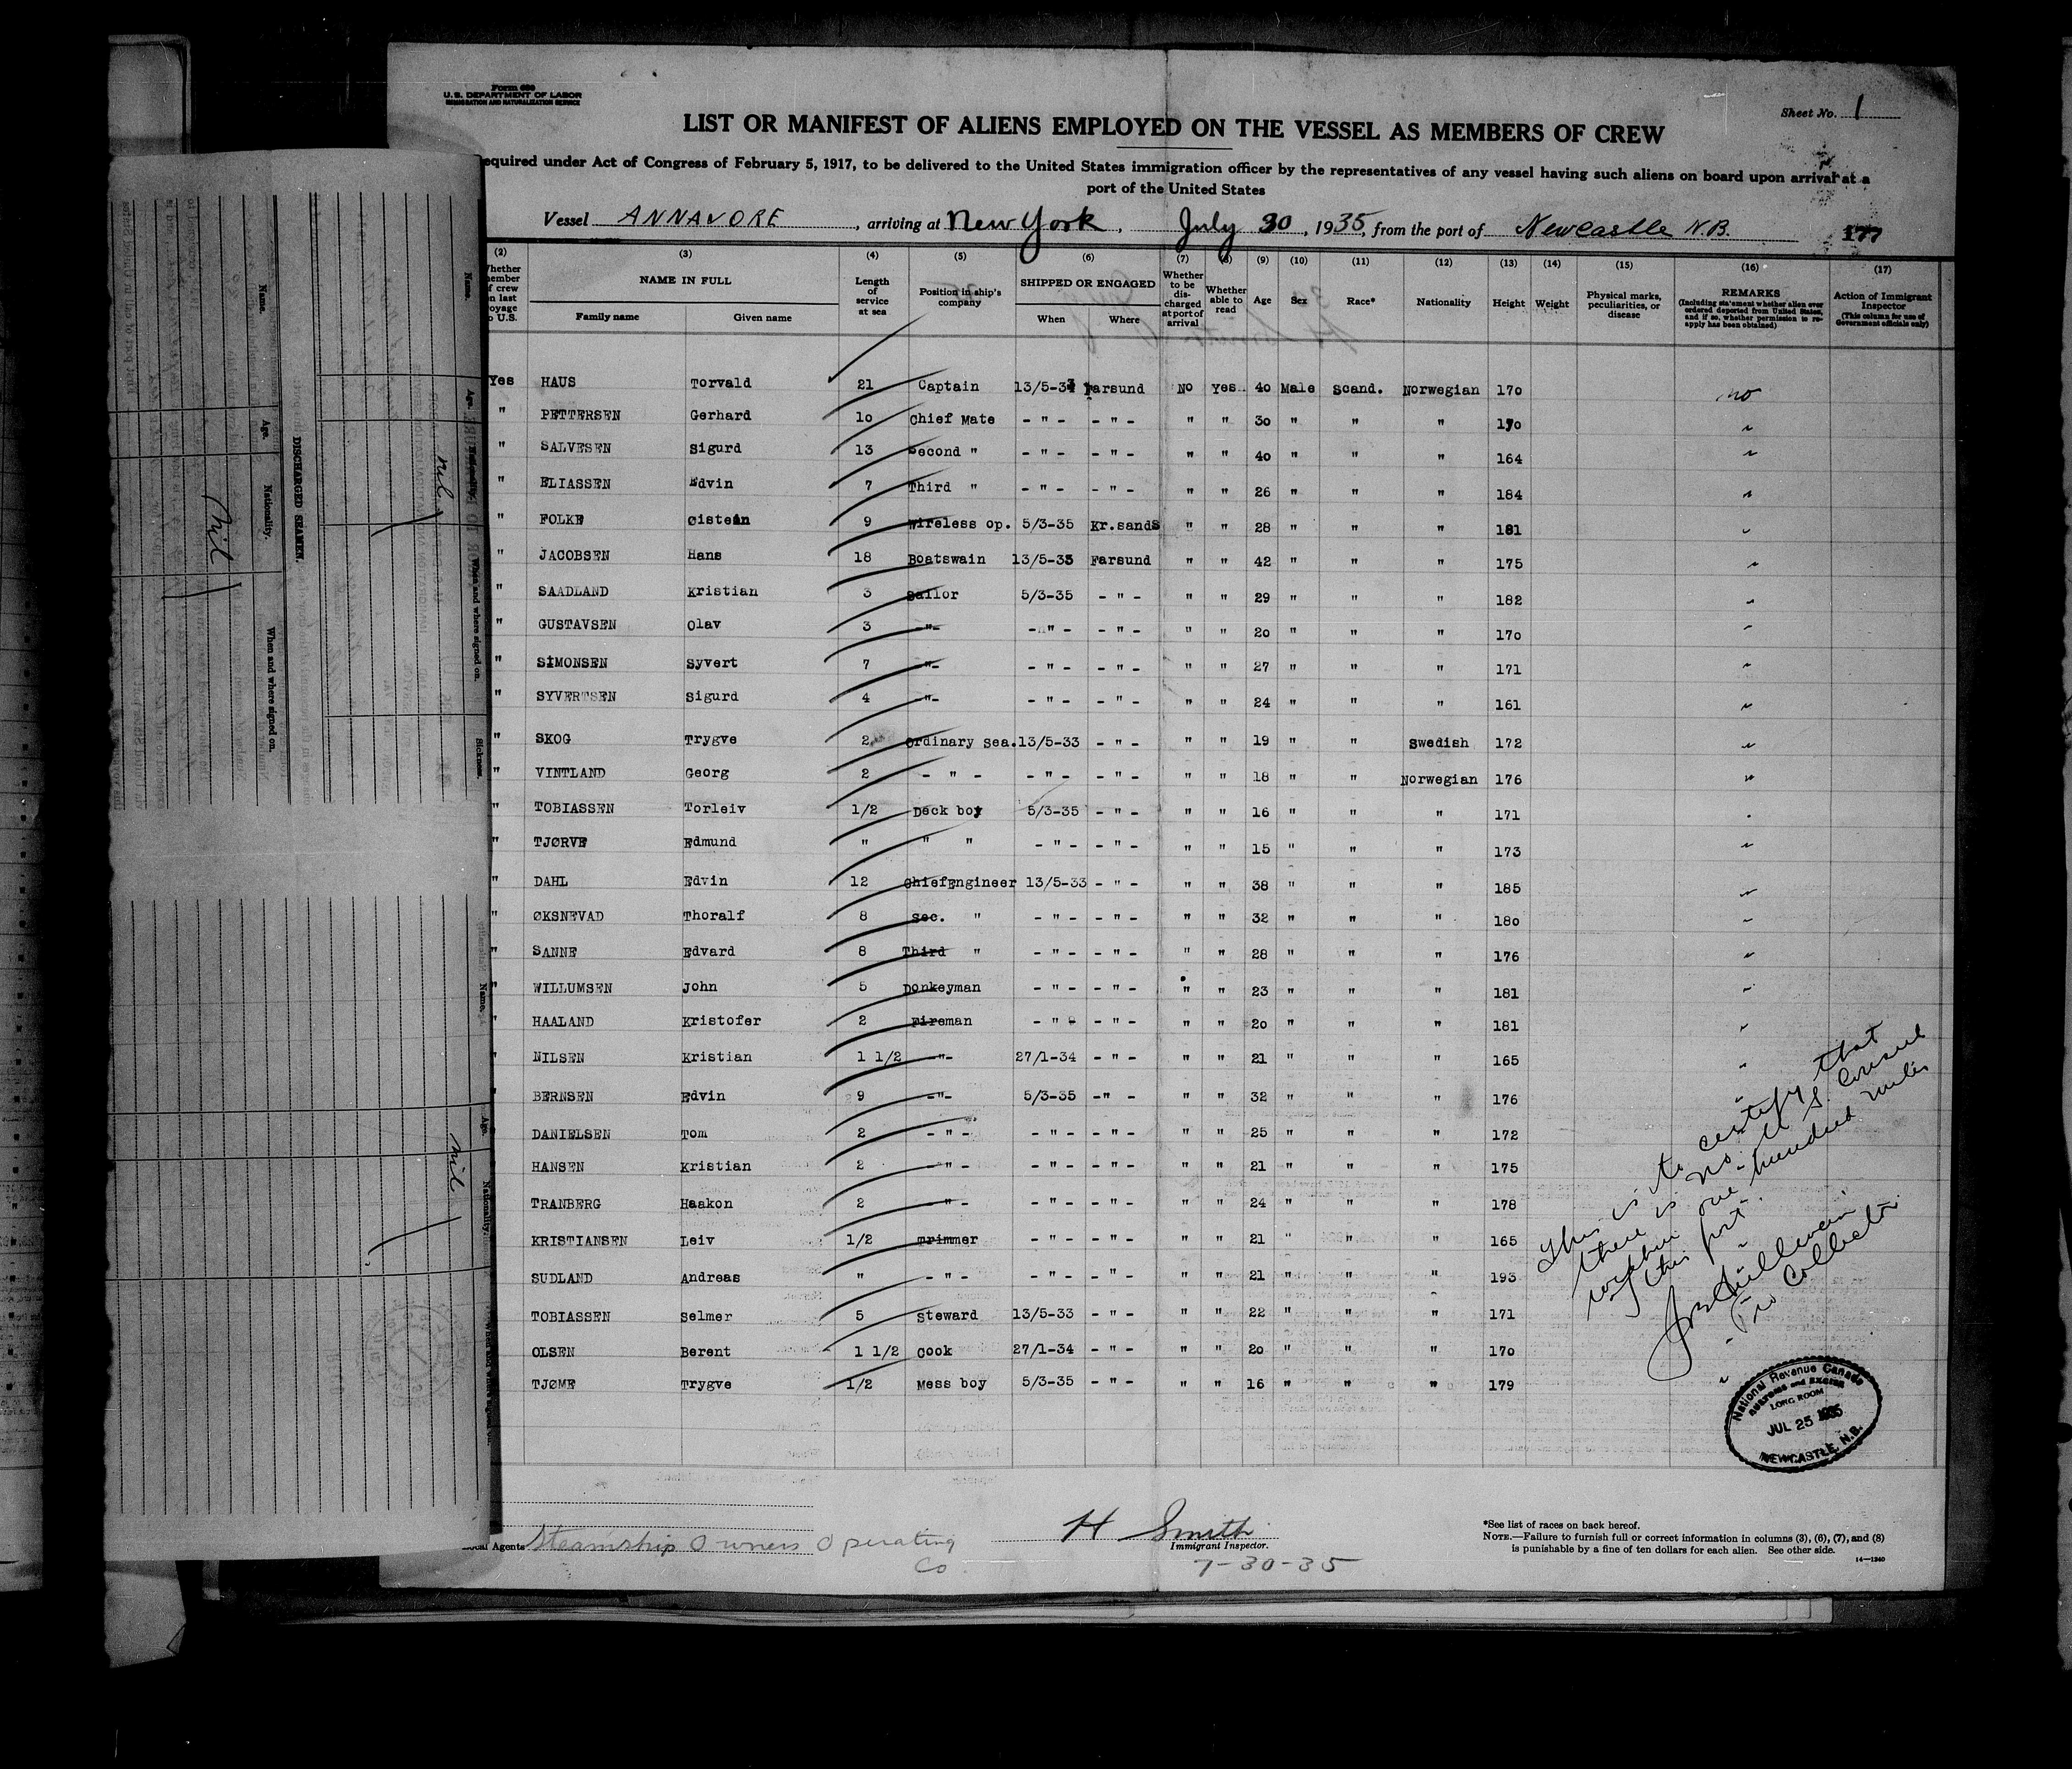 Form 680
U.S. DEPARTMENT OF LABOR
IMMIGRATION AND NATURALIZATION SERVICE
Sheet No. 1
LIST OR MANIFEST OF ALIENS EMPLOYED ON THE VESSEL AS MEMBERS OF CREW
equired under Act of Congress of February 5, 1917, to be delivered to the United States immigration officer by the representatives of any vessel having such aliens on board upon arrival at a
port of the United States
Vessel ANNAVORE, arriving at New York, July 30, 1935, from the port of Newcastle N.B. 177
(2) (3) (4) (5) (6) (7) (8) (9) (10) (11) (12) (13) (14) (15) (16) (17)
Whether member of crew on last voyage to U.S. NAME IN FULL Family name Given name Length of service at sea Position in ship's company SHIPPED OR ENGAGED When Where Whether to be discharged at port of arrival Whether able to read Age Sex Race* Nationality Height Weight Physical marks, peculiarities, or disease REMARKS (Including statement whether alien ever ordered deported from United States, and if so, whether permission to reapply has been obtained) Action of Immigrant Inspector (This column for use of Government officials only)
Yes HAUS Torvald 21 Captain 13/5-33 Farsund No Yes. 40 Male Scand. Norwegian 170 no
" PETTERSEN Gerhard 10 Chief Mate - " - - " - " " 30 " " " 170 "
" SALVESEN Sigurd 13 Second " - " - - " - " " 40 " " " 164 "
" ELIASSEN Edvin 7 Third " - " - - " - " " 26 " " " 184 "
" FOLKE Øistein 9 Wireless op. 5/3-35 Kr.sands " " 28 " " " 181 "
" JACOBSEN Hans 18 Boatswain 13/5-33 Farsund " " 42 " " " 175 "
" SAADLAND Kristian 3 Sailor 5/3-35 - " - " " 29 " " " 182 "
" GUSTAVSEN Olav 3 -"- - " - - " - " " 20 " " " 170 "
" SIMONSEN Syvert 7 -"- - " - - " - " " 27 " " " 171 "
" SYVERTSEN Sigurd 4 -"- - " - - " - " " 24 " " " 161 "
" SKOG Trygve 2 Ordinary sea. 13/5-33 - " - " " 19 " " Swedish 172 "
" VINTLAND Georg 2 - " - - " - - " - " " 18 " " Norwegian 176 "
" TOBIASSEN Torleiv 1/2 Deck boy 5/3-35 - " - " " 16 " " " 171
" TJØRVE Edmund " " " - " - - " - " " 15 " " " 173 "
" DAHL Edvin 12 ChiefEngineer 13/5-33 - " - " " 38 " " " 185 "
" ØKSNEVAD Thoralf 8 Sec. " - " - - " - " " 32 " " " 180 "
" SANNE Edvard 8 Third " - " - - " - " " 28 " " " 176 "
" WILLUMSEN John 5 Donkeyman - " - - " - " " 23 " " " 181 "
" HAALAND Kristofer 2 Fireman - " - - " - " " 20 " " " 181 "
" NILSEN Kristian 1 1/2 -"- 27/1-34 - " - " " 21 " " " 165 "
" BERNSEN Edvin 9 -"- 5/3-35 -" - " " 32 " " " 176 "
DANIELSEN Tom 2 - " - - " - - " - " " 25 " " " 172
HANSEN Kristian 2 - " - - " - - " - " " 21 " " " 175
TRANBERG Haakon 2 - " - - " - - " - " " 24 " " " 178
KRISTIANSEN Leiv 1/2 Trimmer - " - - " - " " 21 " " " 165
SUDLAND Andreas " - " - - " - - " - " " 21 " " " 193
TOBIASSEN Selmer 5 Steward 13/5-33 - " - " " 22 " " " 171
OLSEN Berent 1 1/2 Cook 27/1-34 - " - " " 20 " " " 170
TJØME Trygve 1/2 Mess boy 5/3-35 - " - " " 16 " " " 179
This is to certify that
there is no U.S. Consul
within one hundred miles
this port.
Collector
National Revenue Canada
CUSTOMS and EXCISE
LONG ROOM
JUL 25 1935
NEWCASTLE, N.B.
Local Agents Steamship Owners Operating
Co
H Smith
Immigrant Inspector.
7-30-35
*See list of races on back hereof.
NOTE.—Failure to furnish full or correct information in columns (3), (6), (7), and (8)
is punishable by a fine of ten dollars for each alien. See other side.
14—1240
Name.
Age.
Nationality.
When and where signed on.
DISCHARGED SEAMEN.
Nil
Name.
Age.
nil
When and where signed on.
Sickness.
Name.
Age.
Nationality.
nil